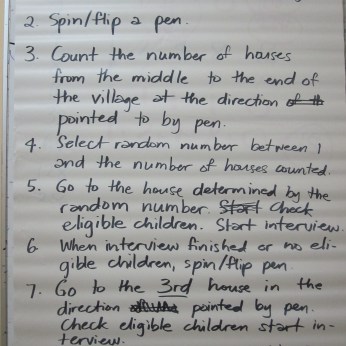 2. Spin/flip a pen.
3. Count the number of houses
from the middle to the end of
the village at the direction of th
pointed to by pen.
4. Select random number between 1
and the number of houses counted.
5. Go to the house determined by the
random number. Start Check
eligible children. Start interview.
6 When interview finished or no eli-
gible children, spin/flip pen
7. Go to the 3rd house in the
direction pointed by pen.
Check eligible children start in-
terview.